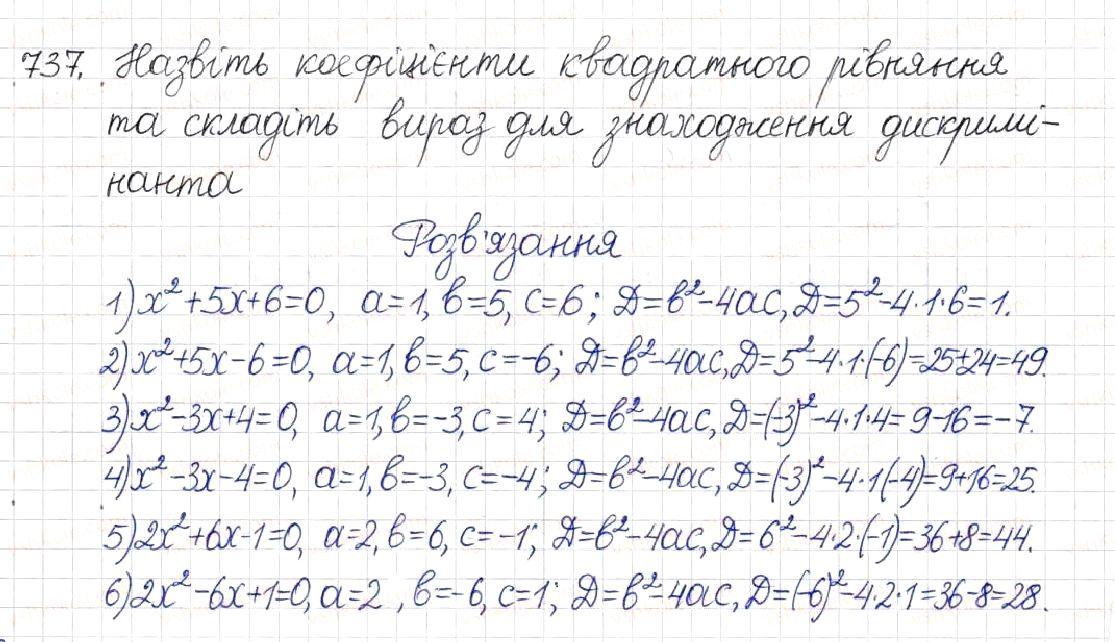 737. Назвіть коефіцієнти квадратного рівняння
та складіть вираз для знаходження дискримі-
нанта
Розв'язання
1) x²+5x+6=0, a=1, b=5, c=6; Д=b²-4ac, Д=5²-4·1·6=1.
2) x²+5x-6=0, a=1, b=5, c=-6; Д=b²-4ac, Д=5²-4·1·(-6)=25+24=49.
3) x²-3x+4=0, a=1, b=-3, c=4; Д=b²-4ac, Д=(-3)²-4·1·4=9-16=-7.
4) x²-3x-4=0, a=1, b=-3, c=-4; Д=b²-4ac, Д=(-3)²-4·1(-4)=9+16=25.
5) 2x²+6x-1=0, a=2, b=6, c=-1; Д=b²-4ac, Д=6²-4·2·(-1)=36+8=44.
6) 2x²-6x+1=0, a=2, b=-6, c=1; Д=b²-4ac, Д=(-6)²-4·2·1=36-8=28.